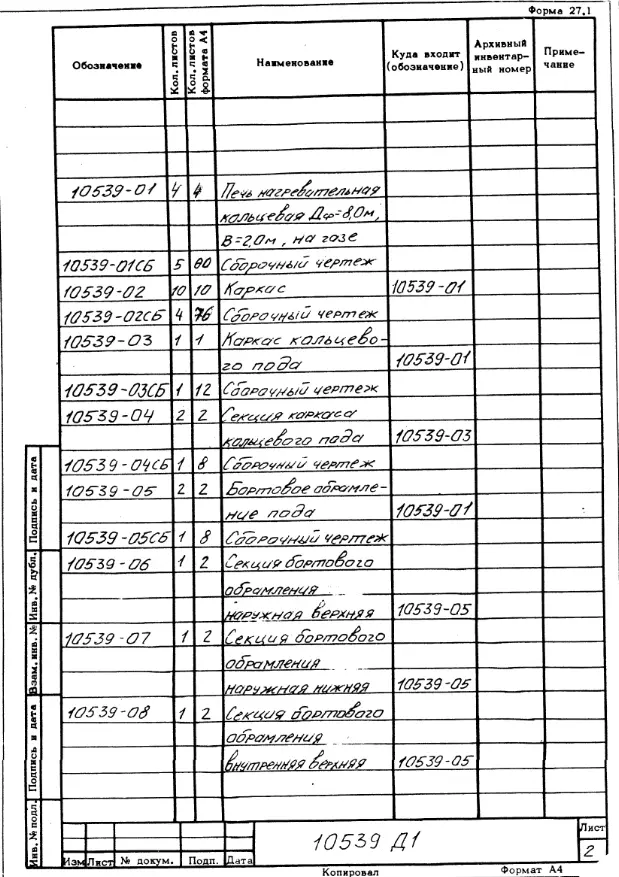 Форма 27.1
Обозначение Кол. листов Кол. листов формата А4 Наименование Куда входит (обозначение) Архивный инвентар-ный номер Приме-чание
10539-01 4 4 Печь нагревательная
кольцевая Дср=8,0м,
В=2,0м, на газе
10539-01СБ 5 80 Сборочный чертеж
10539-02 10 10 Каркас 10539-01
10539-02СБ 4 76 Сборочный чертеж
10539-03 1 1 Каркас кольцево-
го пода 10539-01
10539-03СБ 1 12 Сборочный чертеж
10539-04 2 2 Секция каркаса
кольцевого пода 10539-03
10539-04СБ 1 8 Сборочный чертеж
10539-05 2 2 Бортовое обрамле-
ние пода 10539-01
10539-05СБ 1 8 Сборочный чертеж
10539-06 1 2 Секция бортового
обрамления
наружная верхняя 10539-05
10539-07 1 2 Секция бортового
обрамления
наружная нижняя 10539-05
10539-08 1 2 Секция бортового
обрамления
внутренняя верхняя 10539-05
Подпись и дата
Инв. № дубл.
Взам. инв. №
Подпись и дата
Инв. № подл.
10539 Д1
Лист
2
Изм Лист № докум. Подп. Дата
Копировал Формат А4